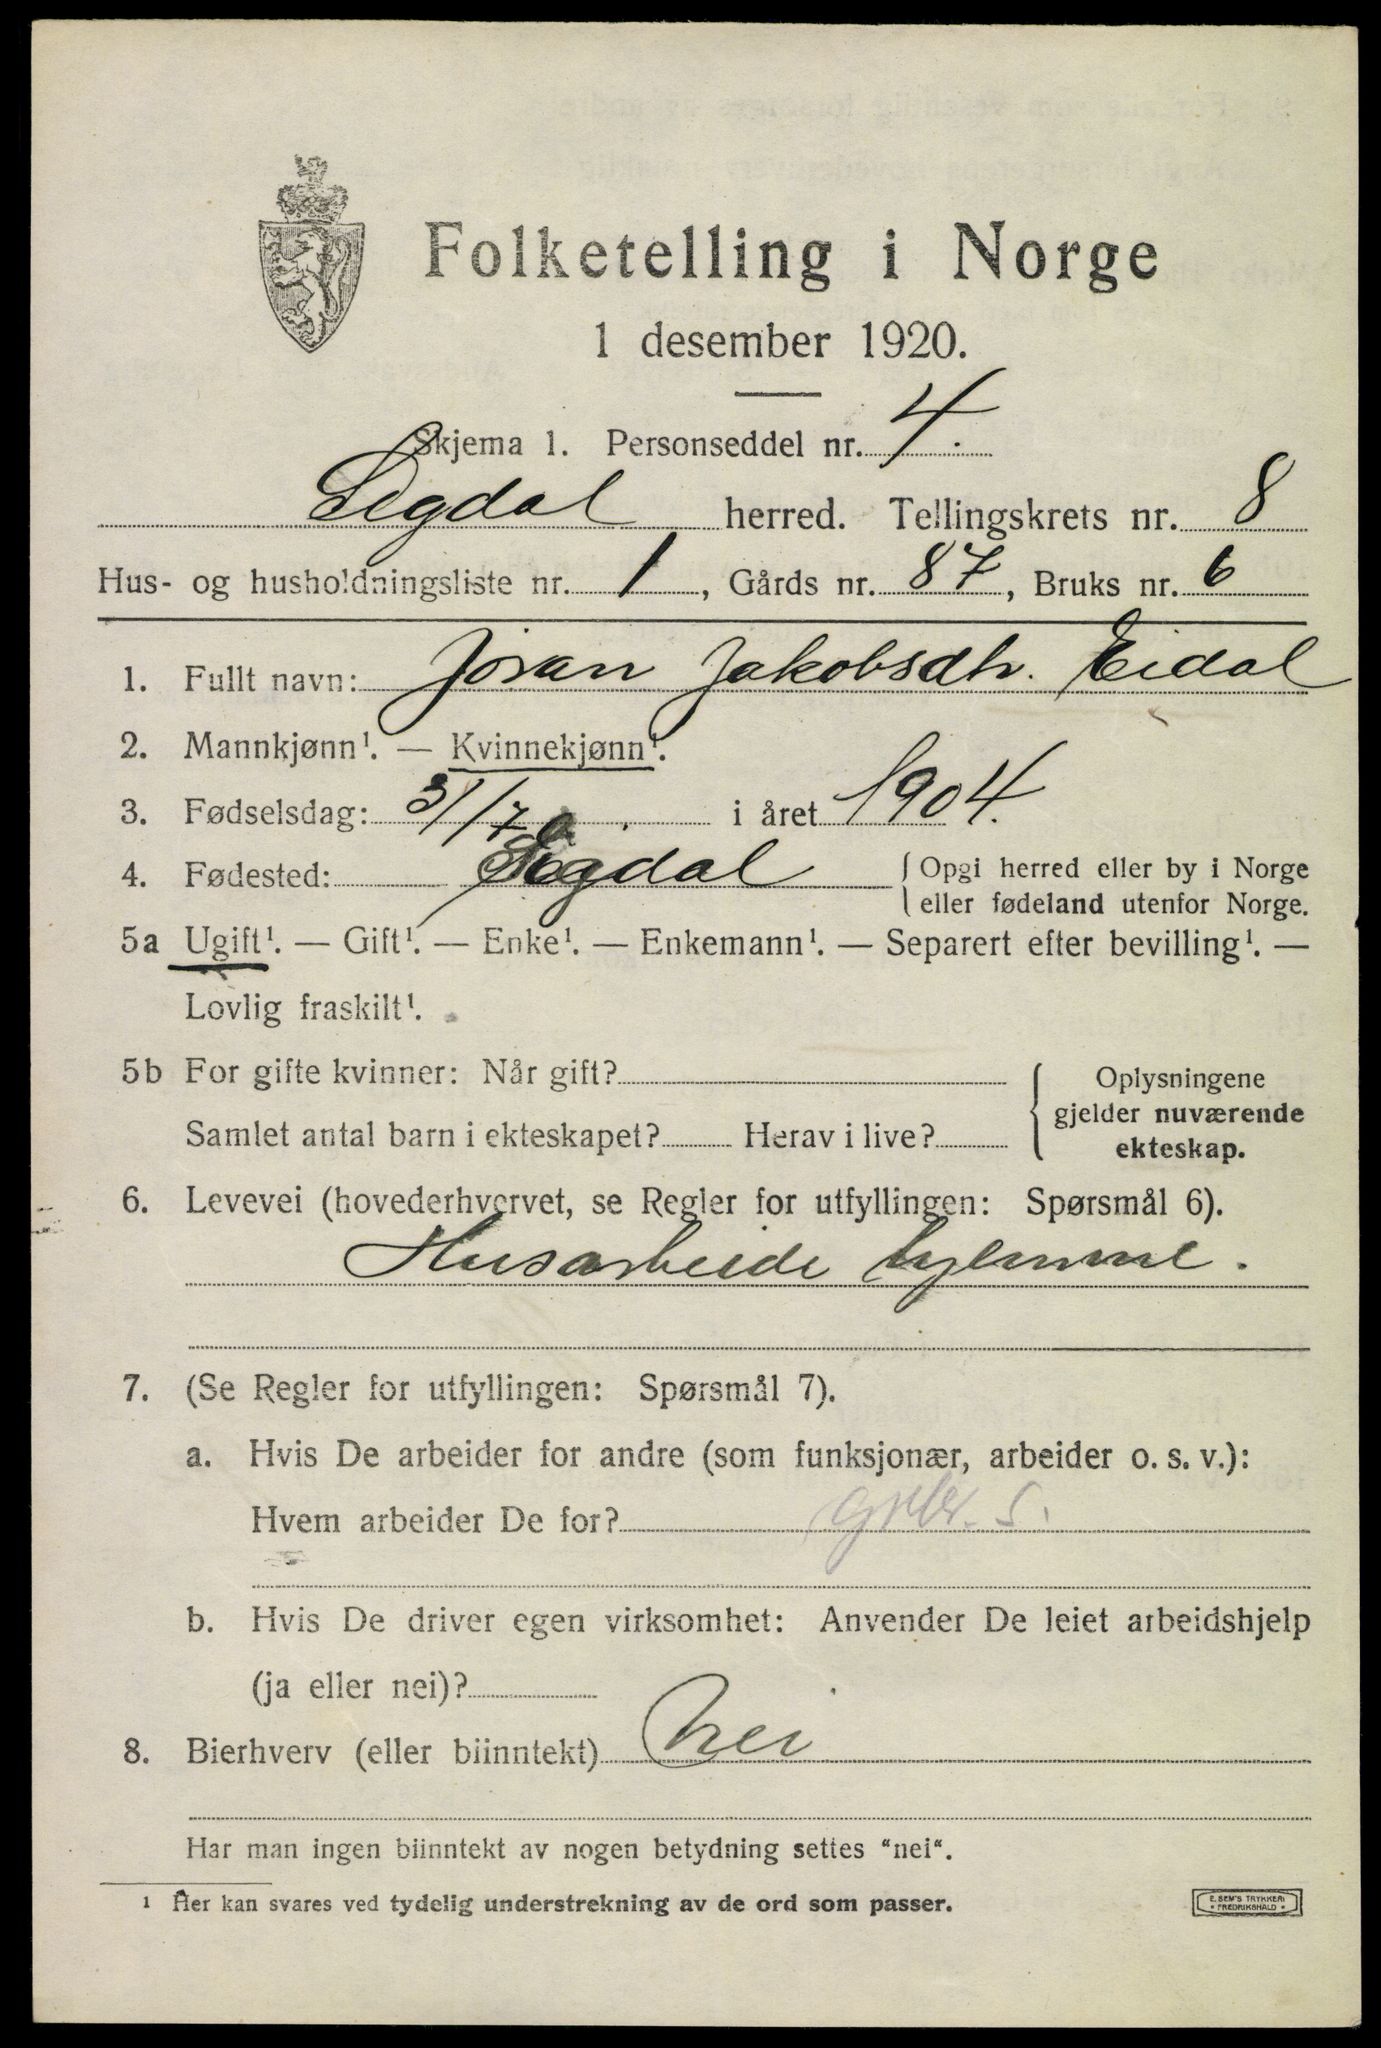 Folketelling i Norge
1 desember 1920.
Skjema 1. Personseddel nr. 4.
Sigdal herred. Tellingskrets nr. 8
Hus- og husholdningsliste nr. 1, Gårds nr. 87, Bruks nr. 6
1. Fullt navn: Jøran Jakobsdtr. Eidal
2. Mannkjønn¹. — Kvinnekjønn¹.
3. Fødselsdag: 3/7 i året 1904.
4. Fødested: Sigdal { Opgi herred eller by i Norge
eller fødeland utenfor Norge.
5a Ugift¹. — Gift¹. — Enke¹. — Enkemann¹. — Separert efter bevilling¹. —
Lovlig fraskilt¹.
5b For gifte kvinner: Når gift?
Samlet antal barn i ekteskapet? Herav i live?
{ Oplysningene
gjelder nuværende
ekteskap.
6. Levevei (hovederhvervet, se Regler for utfyllingen: Spørsmål 6).
Husarbeide hjemme.
7. (Se Regler for utfyllingen: Spørsmål 7).
a. Hvis De arbeider for andre (som funksjonær, arbeider o. s. v.):
Hvem arbeider De for?
b. Hvis De driver egen virksomhet: Anvender De leiet arbeidshjelp
(ja eller nei)?
8. Bierhverv (eller biinntekt) Nei
Har man ingen biinntekt av nogen betydning settes "nei".
1 Her kan svares ved tydelig understrekning av de ord som passer.
E. SEM'S TRYKKERI
* FREDRIKSHALD *